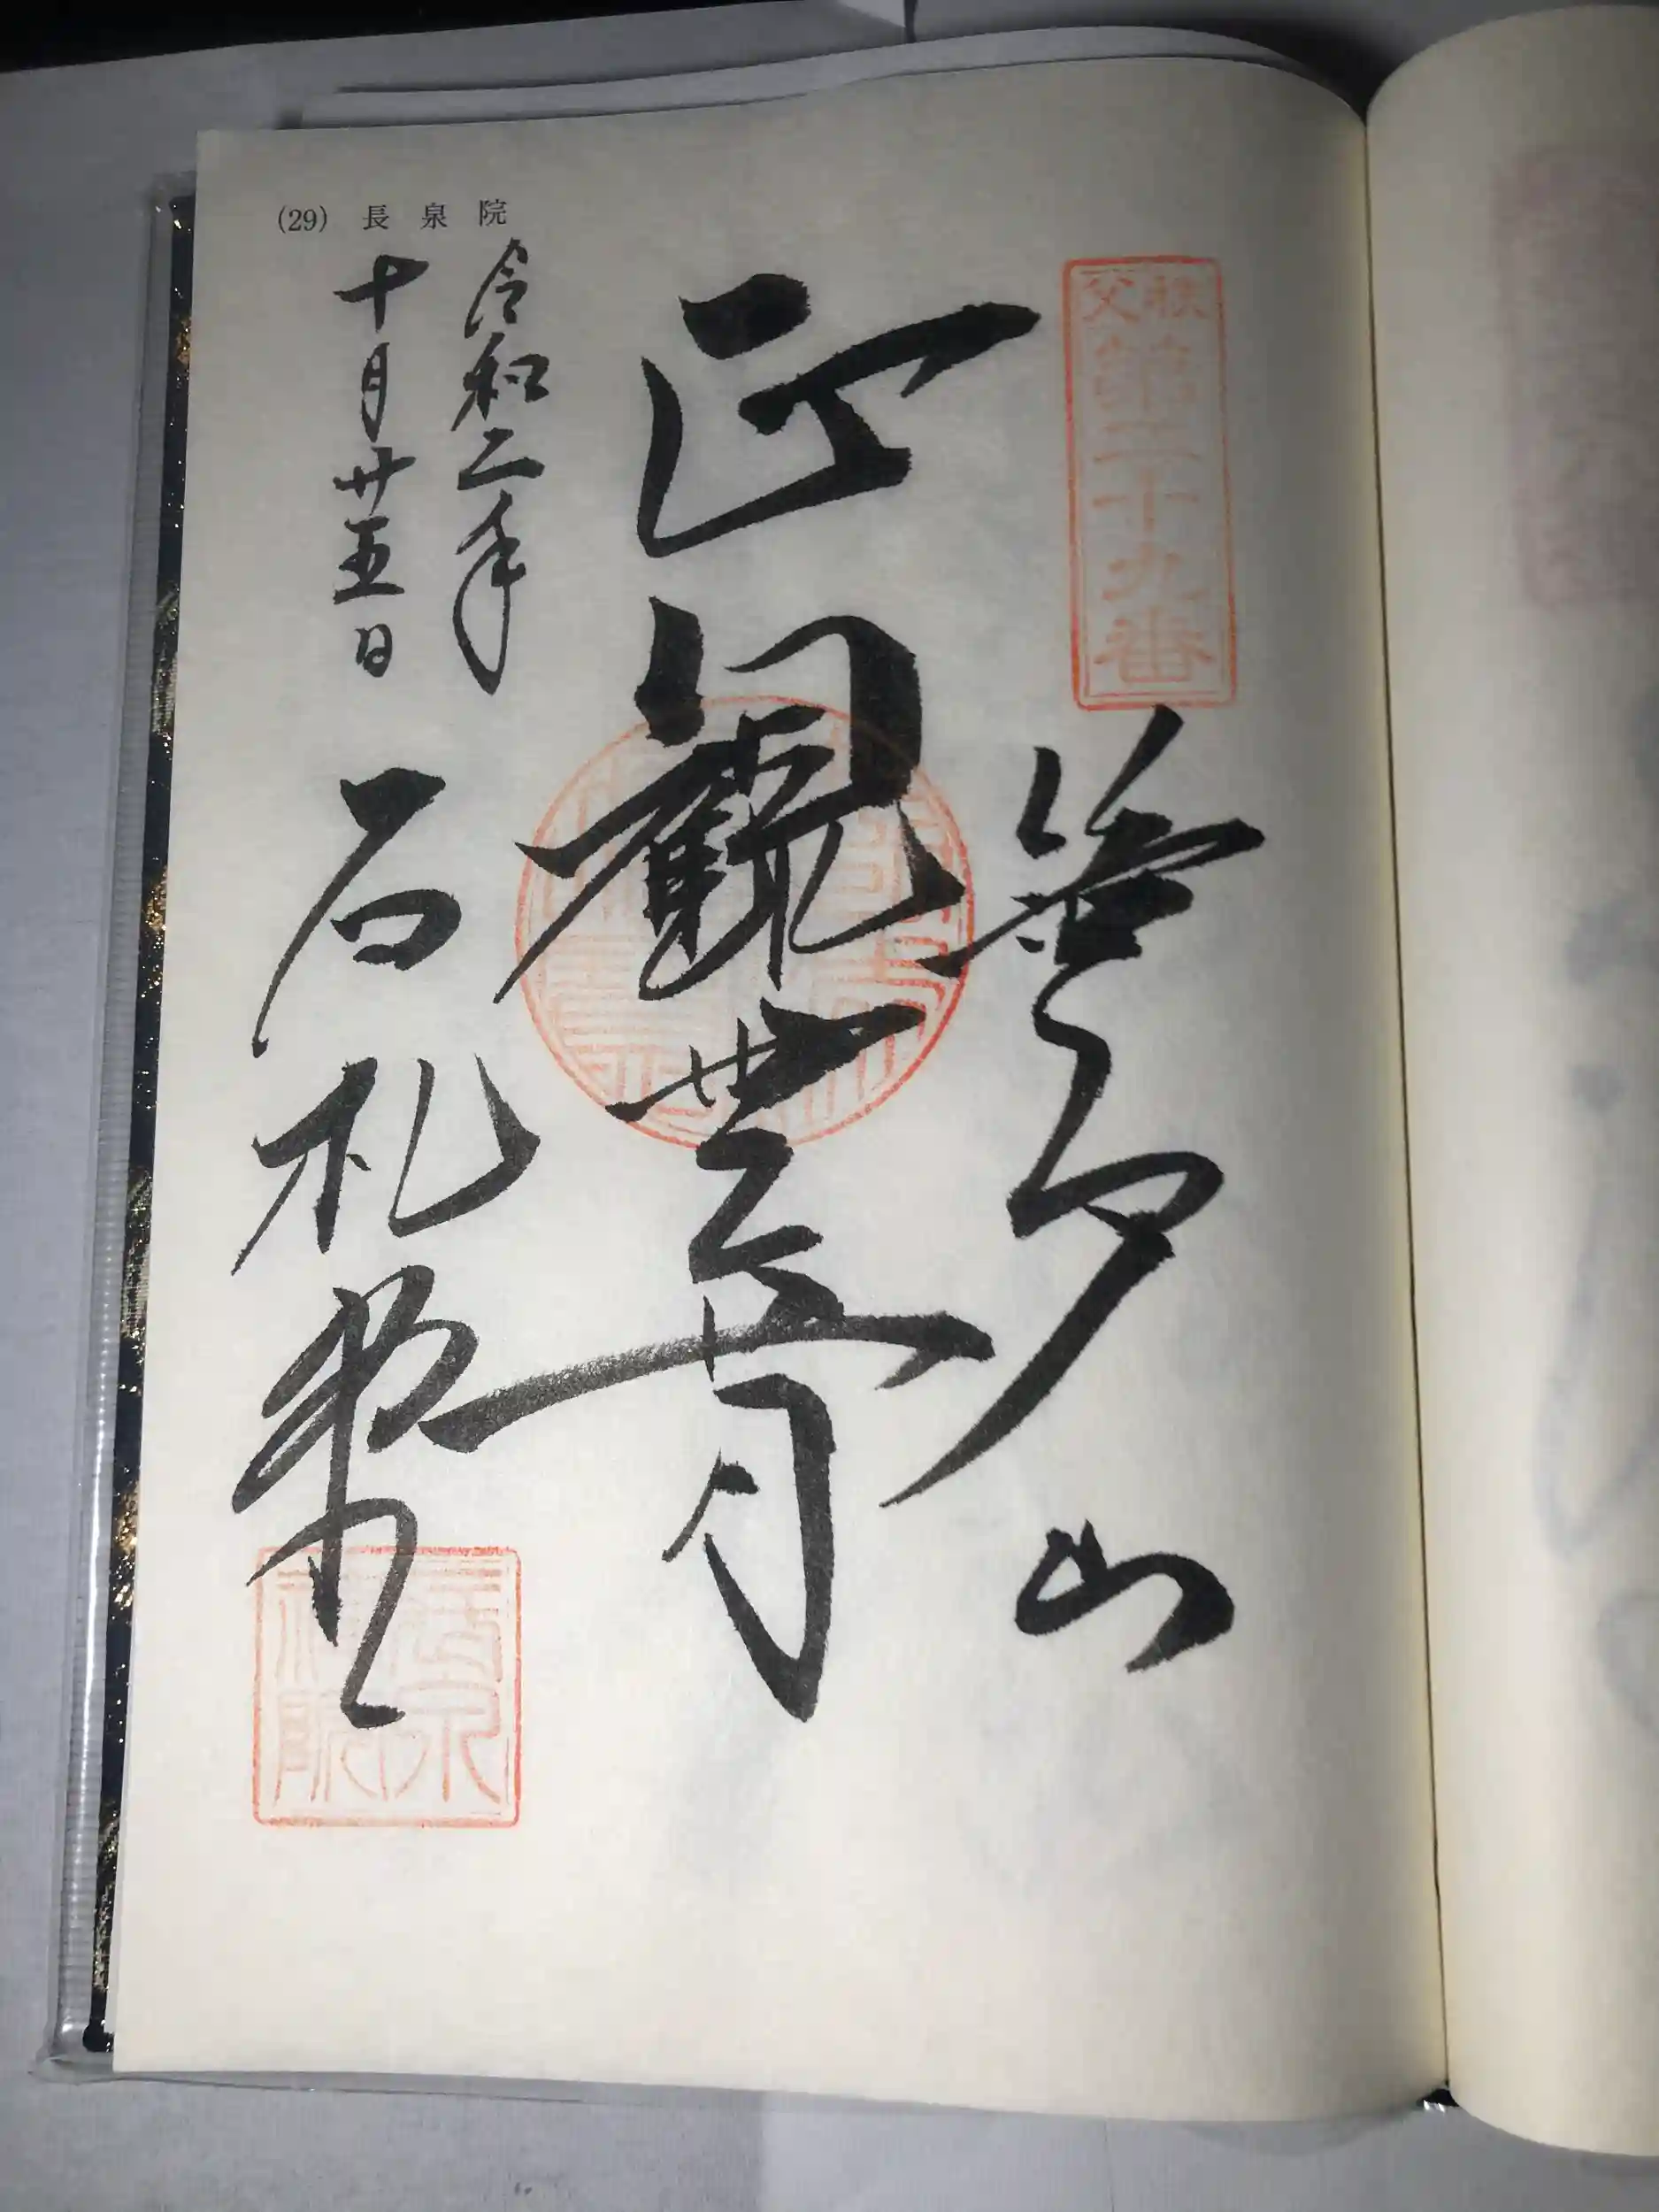 (29) 長泉院
秩父
第二十九番
笹戸山
正観世音
令和二年
十月廿五日
石札堂